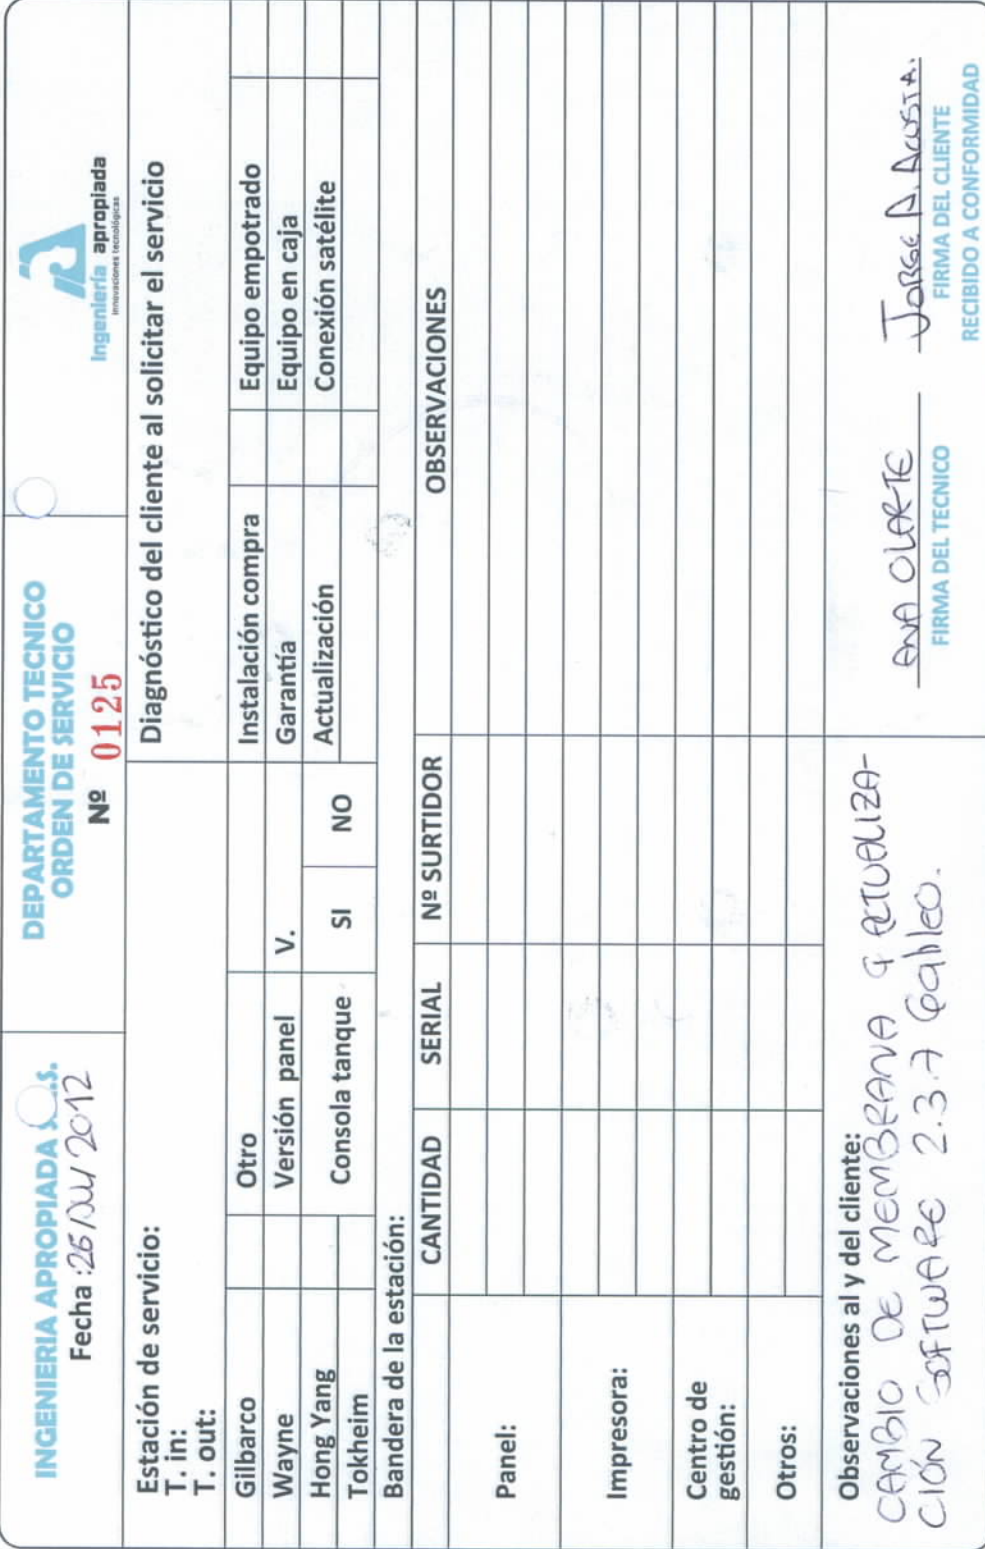 INGENIERIA APROPIADA
Fecha :
2012
DEPARTAMENTO TECNICO
ORDEN DE SERVICIO
Nº 0125
Ingeniería apropiada
innovaciones tecnológicas
Estación de servicio:
T. in:
T. out:
Diagnóstico del cliente al solicitar el servicio
Gilbarco Otro Instalación compra Equipo empotrado
Wayne Versión panel V. Garantía Equipo en caja
Hong Yang Consola tanque SI NO Actualización Conexión satélite
Tokheim
Bandera de la estación:
CANTIDAD SERIAL Nº SURTIDOR OBSERVACIONES
Panel:
Impresora:
Centro de
gestión:
Otros:
Observaciones al y del cliente:
CAMBIO DE MEMBRANA Y ACTUALIZA-
CIÓN SOFTWARE 2.3.7 Galileo.
ANA OLARTE
FIRMA DEL TECNICO
JORGE A. ACOSTA.
FIRMA DEL CLIENTE
RECIBIDO A CONFORMIDAD